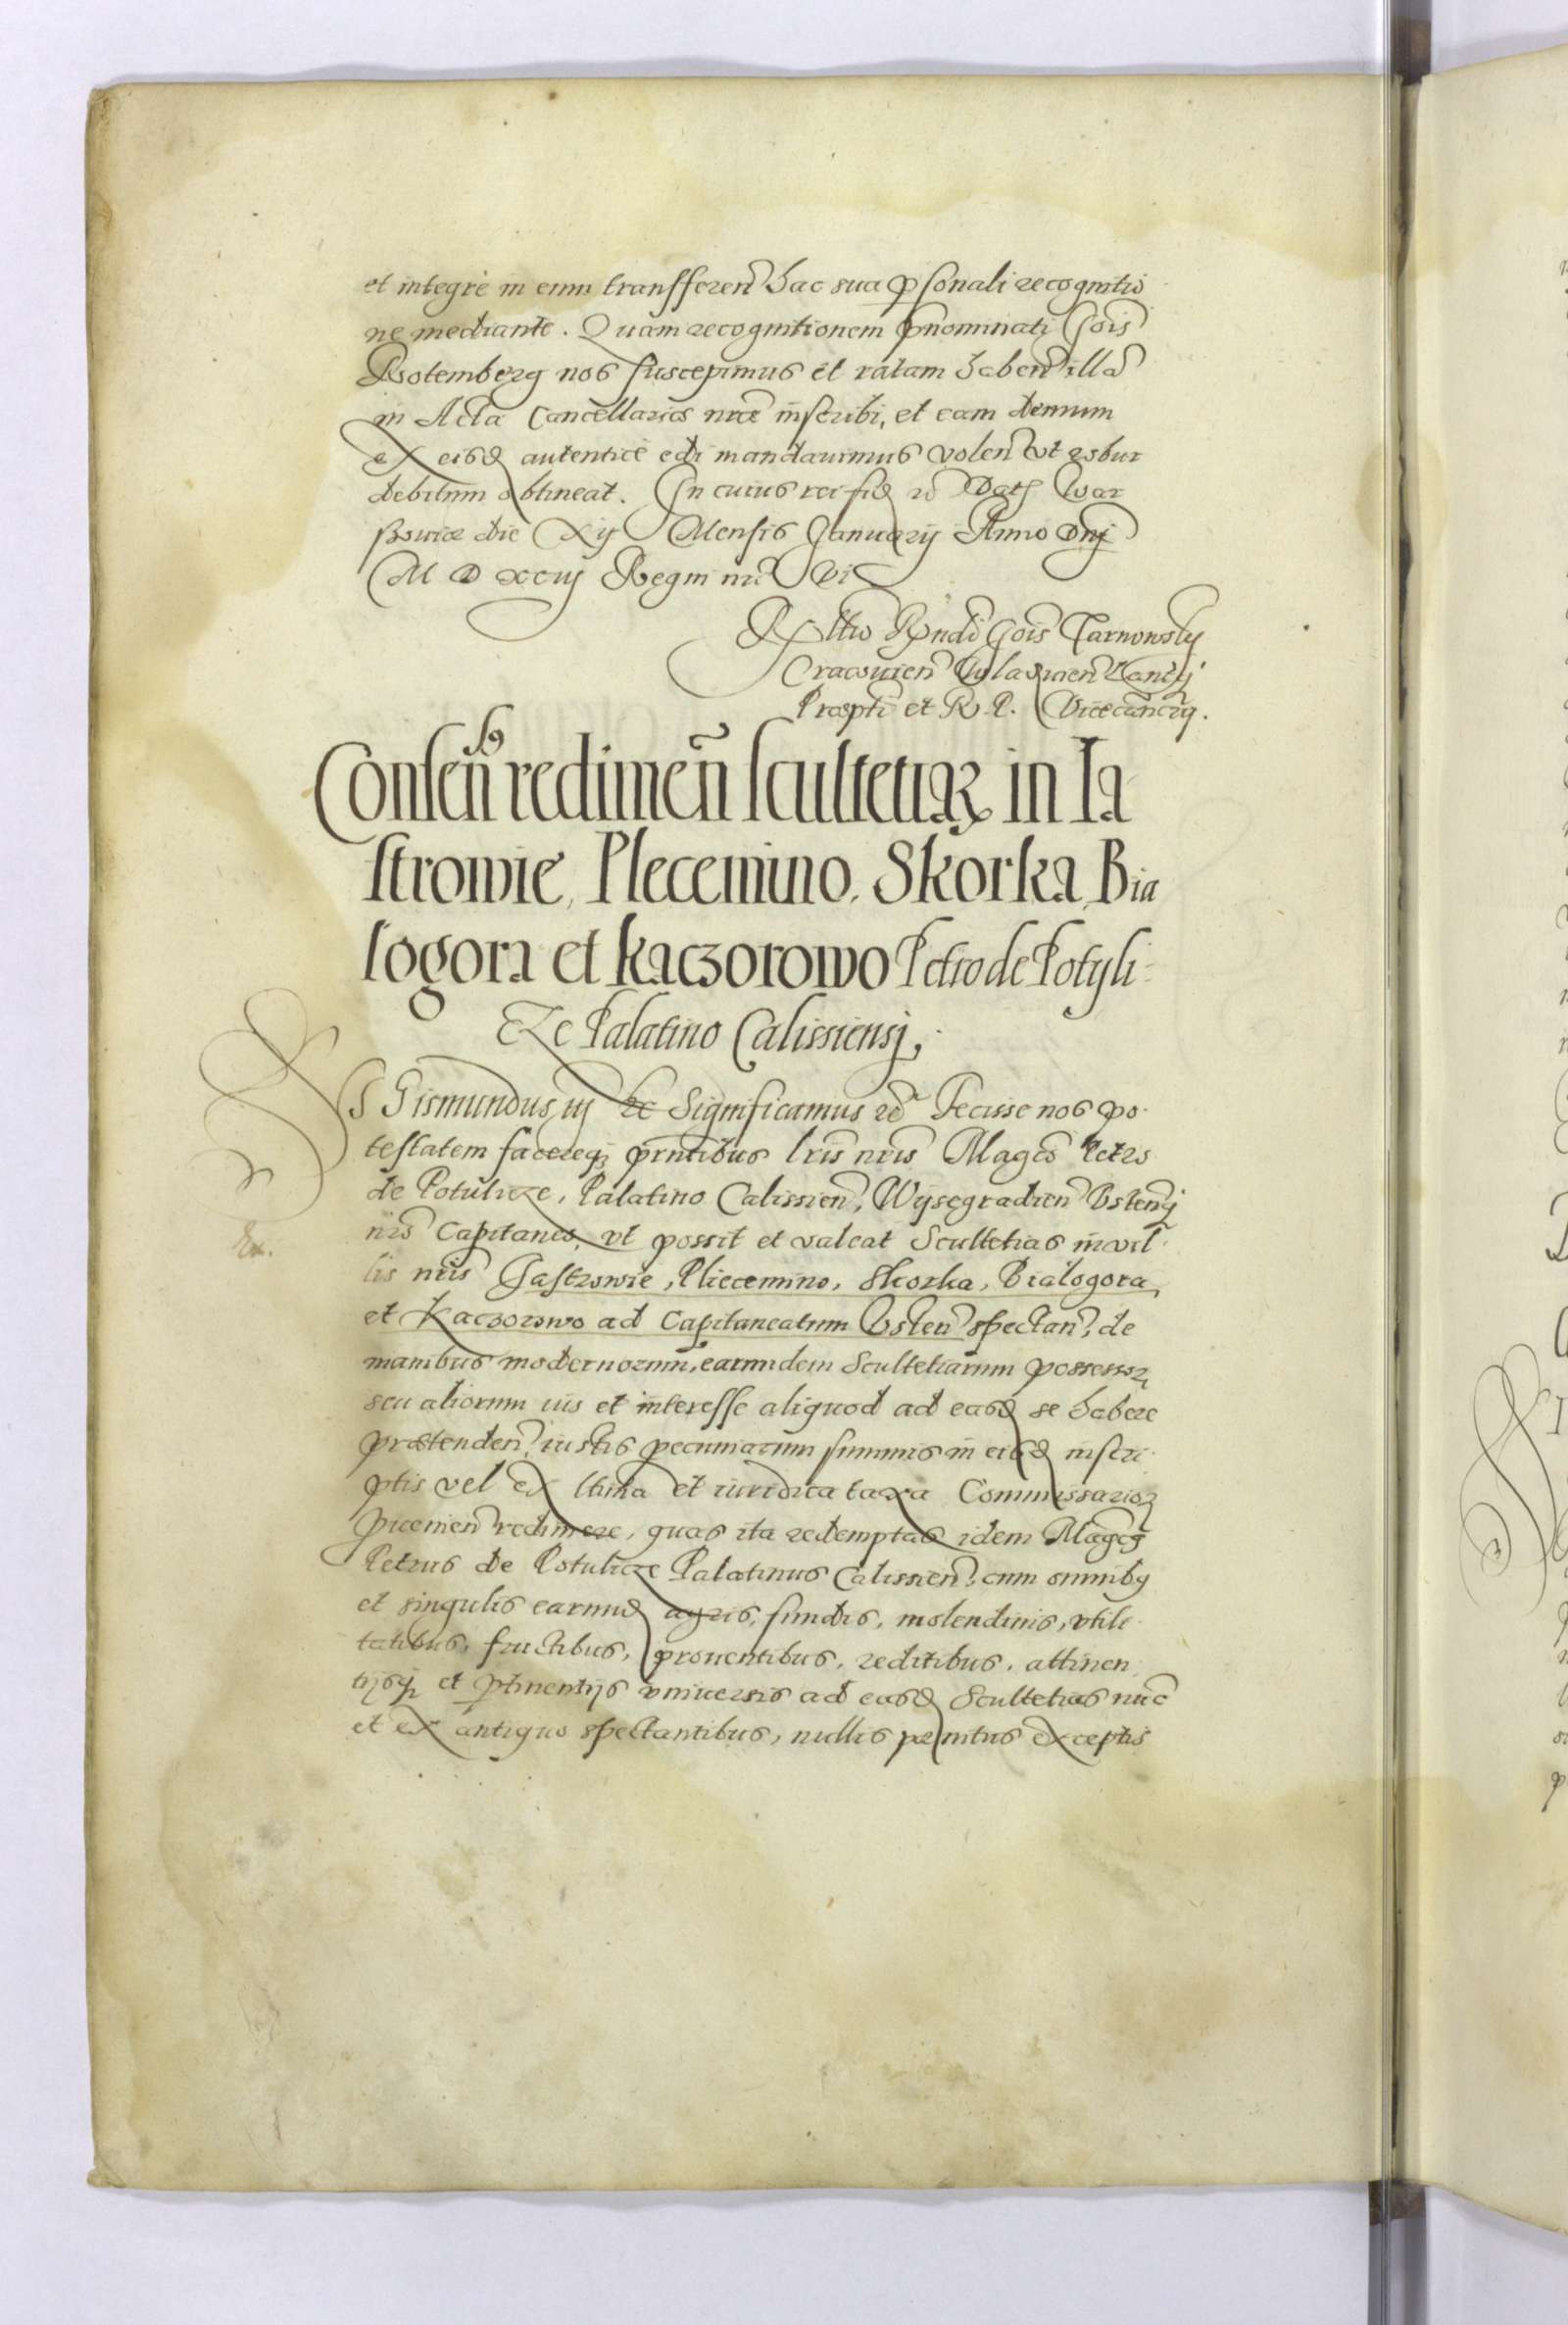 et integrè in eum transfferen̄ hac sua ꝑsonali recognitio
ne mediante. Quam recognitionem p̄nominati Gn̄si
Rotemberg nos suscepimus et ratam haben̄ illā
in Acta Cancellariæ nræ inscribi, et eam demum
ex eisd autenticè edi mandavimus volen̄ ut robur
debitum obtineat. In cuius rei fid rc Dat War
ssoviæ die Xij Mensis Januarij Anno Dnj
M D xciij Regni nri Vi
Rx ltio Rndi Gōis Tarnowsky
Cracovien̄ Vladislavien̄
Præpti et R. P. Vicecancrij.
Consen̄s redimen̄ scultetiaꝝ in Ia
strowie, Plecemino, Skorka, Bia
logora et Kaczorowo Petro de Potuli
cze Palatino Calissiensj,
Sigismundus iij rc Significamus rc Fecisse nos po
testatem facereqꝫ pn̄tibus lris nris Magco Petro
de Potulicze, Palatino Calissien̄, Wysegradien̄ Ustenj
nro Capitaneo, ut possit et valeat Scultetias in vil
lis nris Jastrowie, Pliecemino, Skorka, Bialogora,
et Kaczorowo ad Capitaneatum Usten̄ spectan̄, de
manibus modernorum, earumdem Scultetiarum possessoꝝ
seu aliorum ius et interesse aliquod ad easd se habere
prætenden̄, iustis pecuniarum summis in eisd inscri
ptis vel ex ltima et iuridica taxa Commissarioꝝ
ꝓvenien̄ redimere, quas ita redemptas idem Magcs
Petrus de Potulicze Palatinus Calissien̄, cum omnibꝫ
et singulis earumd agris, fundis, molendinis, utili
tatibus, fructibus, proventibus, reditibus, attinen
tijsqꝫ et ꝑtinentijs universis ad easd Scultetias nūc
et ex antiquo spectantibus, nullis penitus exceptis